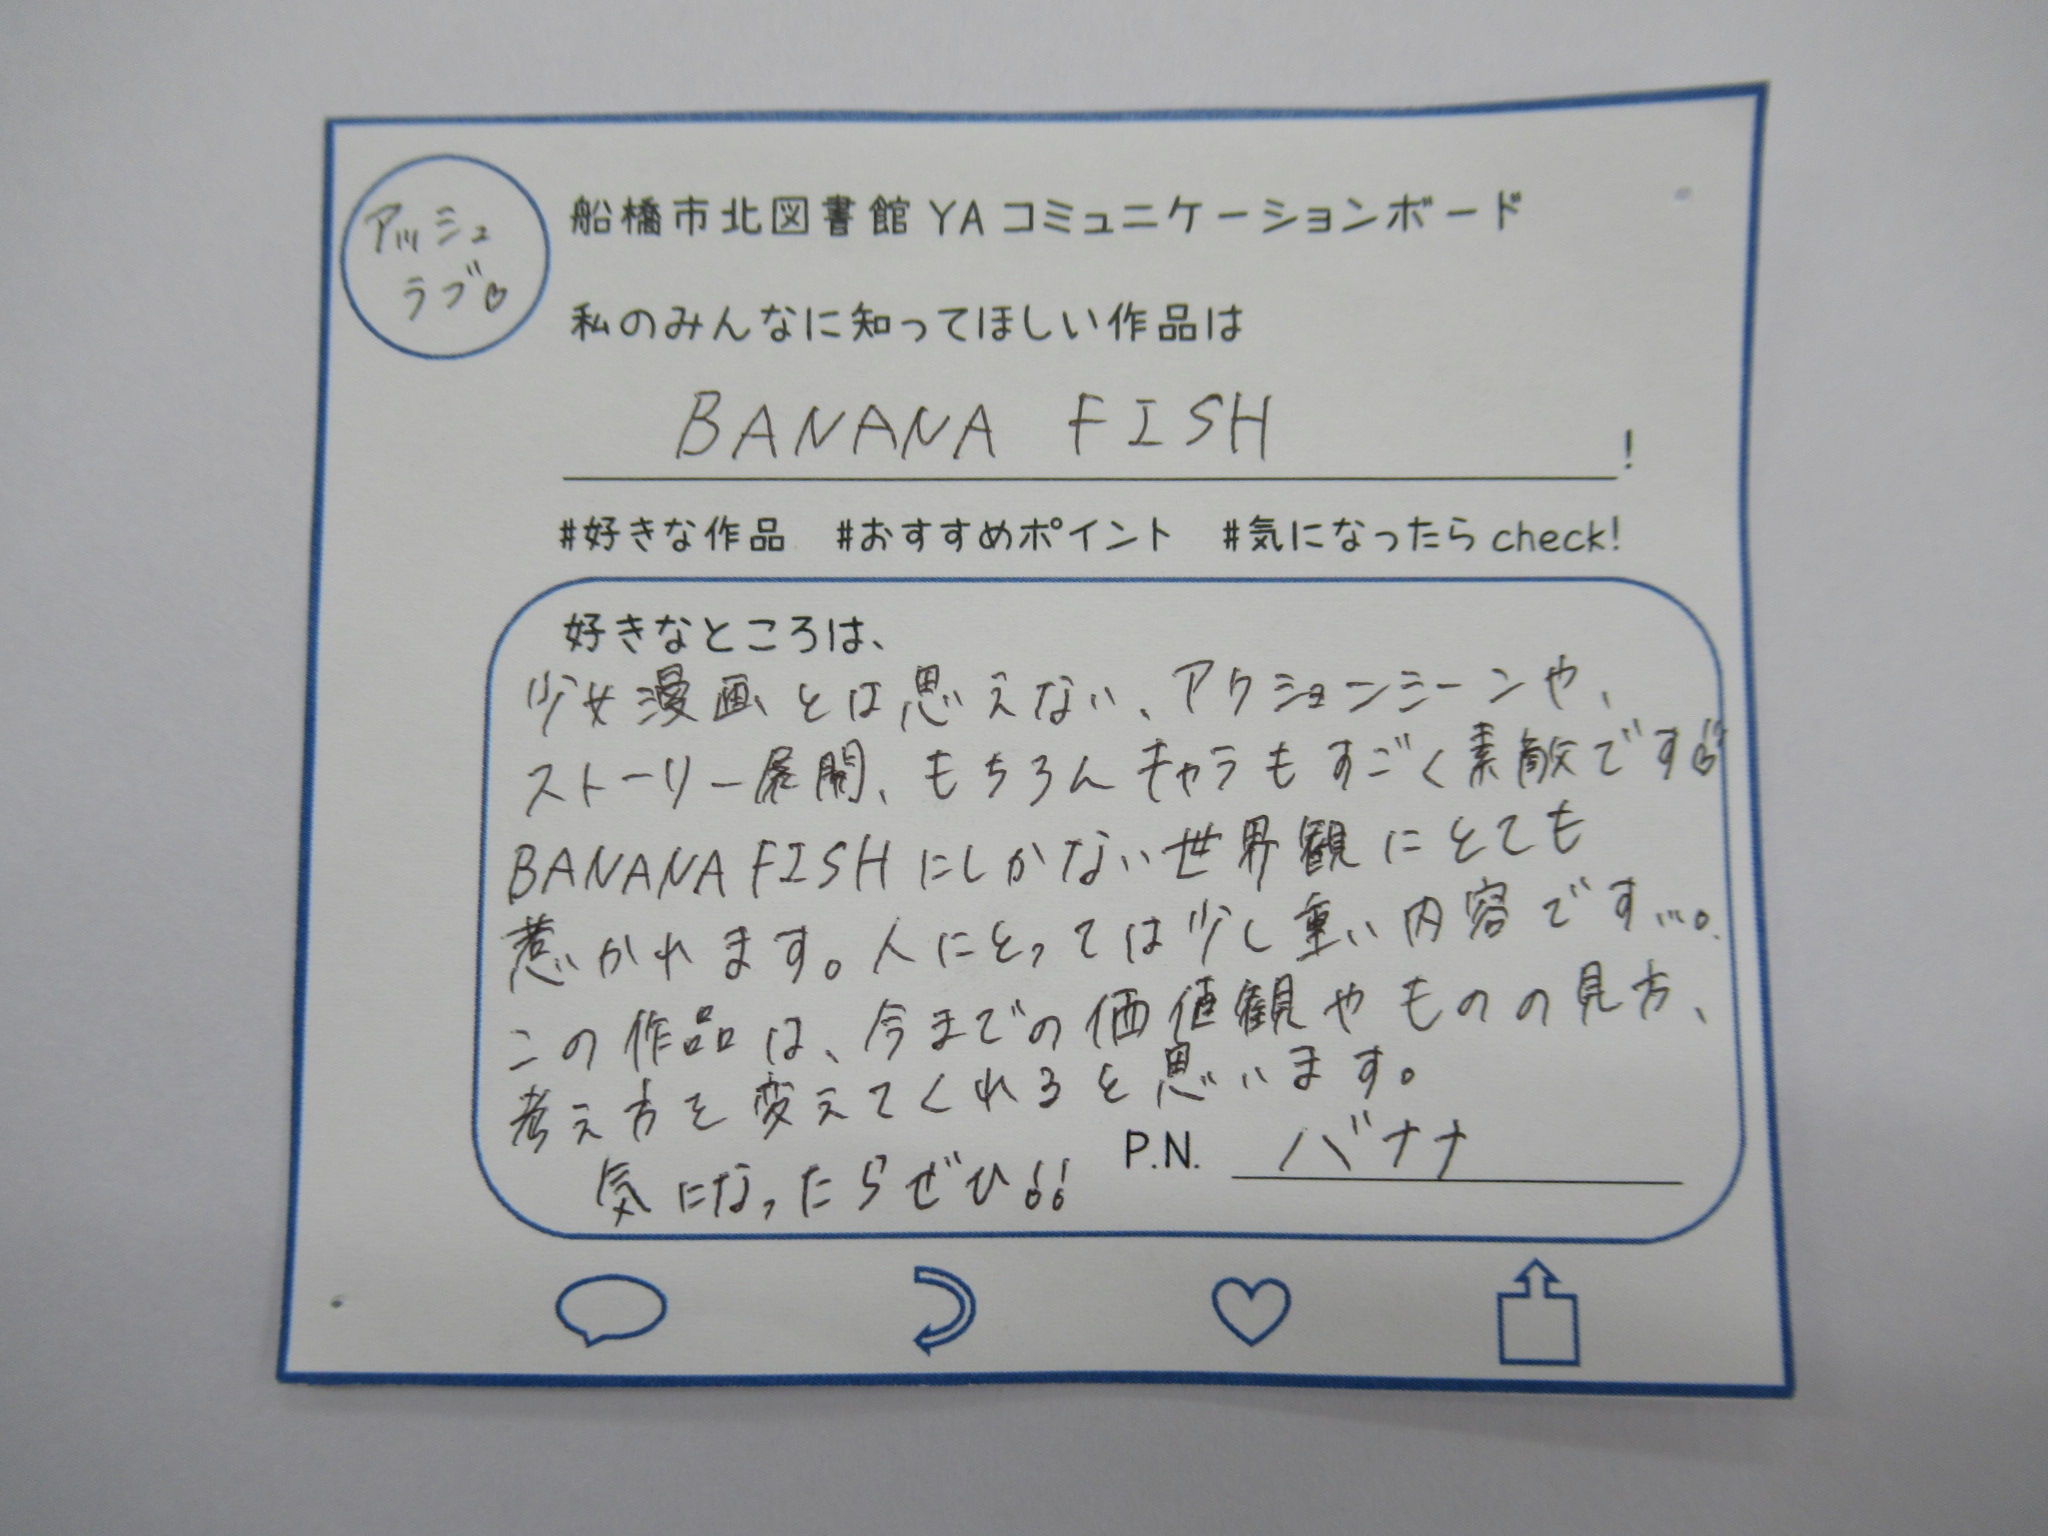 アッシュ
ラブ♡
船橋市北図書館 YA コミュニケーションボード
私のみんなに知ってほしい作品は
BANANA FISH !
#好きな作品 #おすすめポイント #気になったら check!
好きなところは、
少女漫画とは思えない、アクションシーンや、
ストーリー展開、もちろんキャラもすごく素敵です!!
BANANA FISHにしかない世界観にとても
惹かれます。人にとっては少し重い内容です…。
この作品は、今までの価値観やものの見方、
考え方を変えてくれると思います。
気になったらぜひ!!
P.N. バナナ